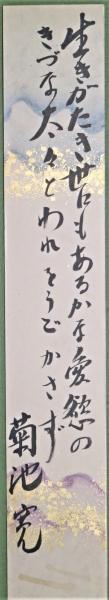 生きがたき世にもあるかな愛慾の
きづな太々とわれをうごかさず
菊池寛